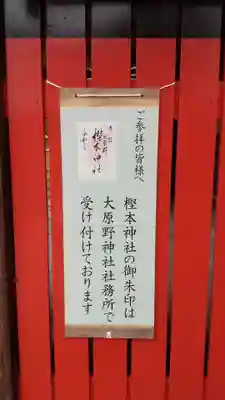 ご参拝の皆様へ
樫本神社の御朱印は
大原野神社社務所で
受け付けております
樫本神社